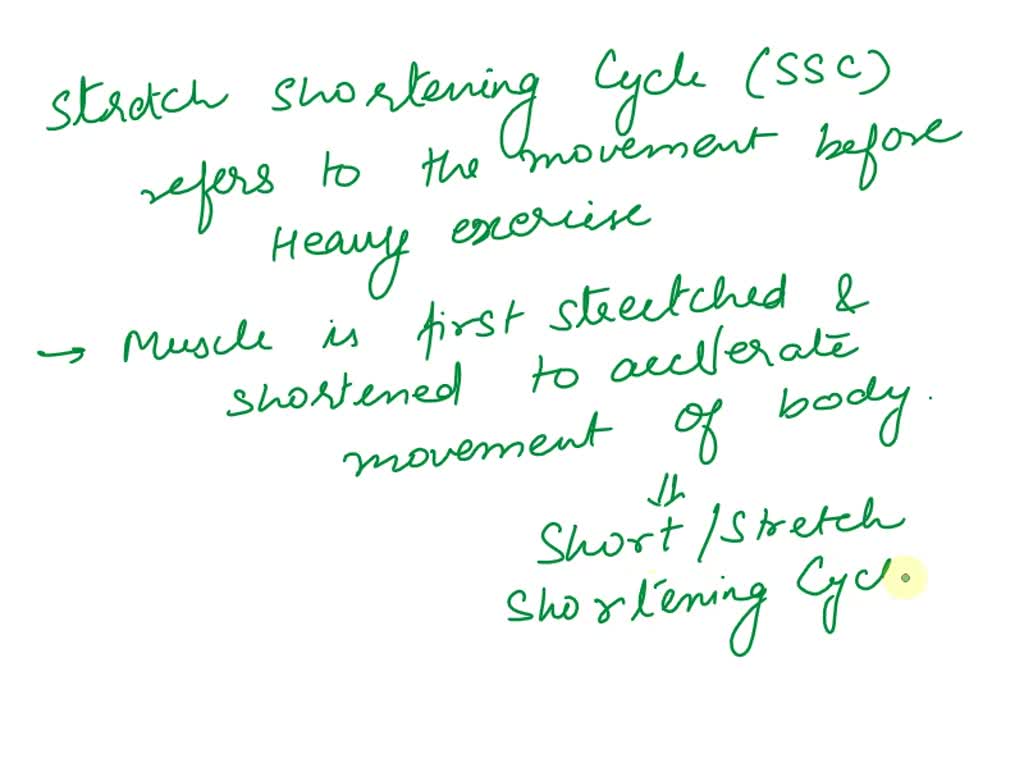 Stretch Shortening Cycle (SSC)
refers to the movement before
Heavy exercise
→ Muscle is first streetched &
shortened to acclerate
movement of body.
⇓
Short / Stretch
Shortening Cycl